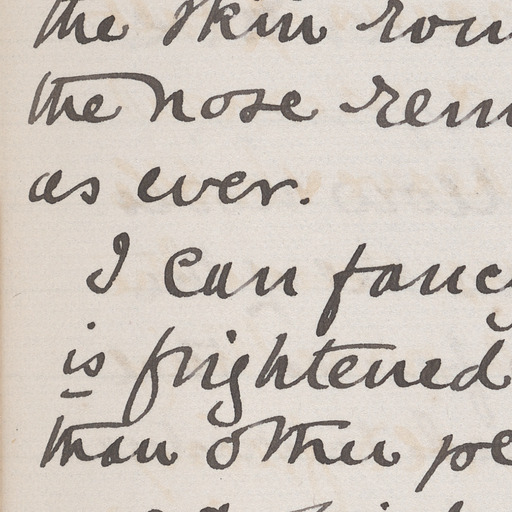 the skin roun
the nose rem
as ever.
I can fancy
is frightened
than other pe